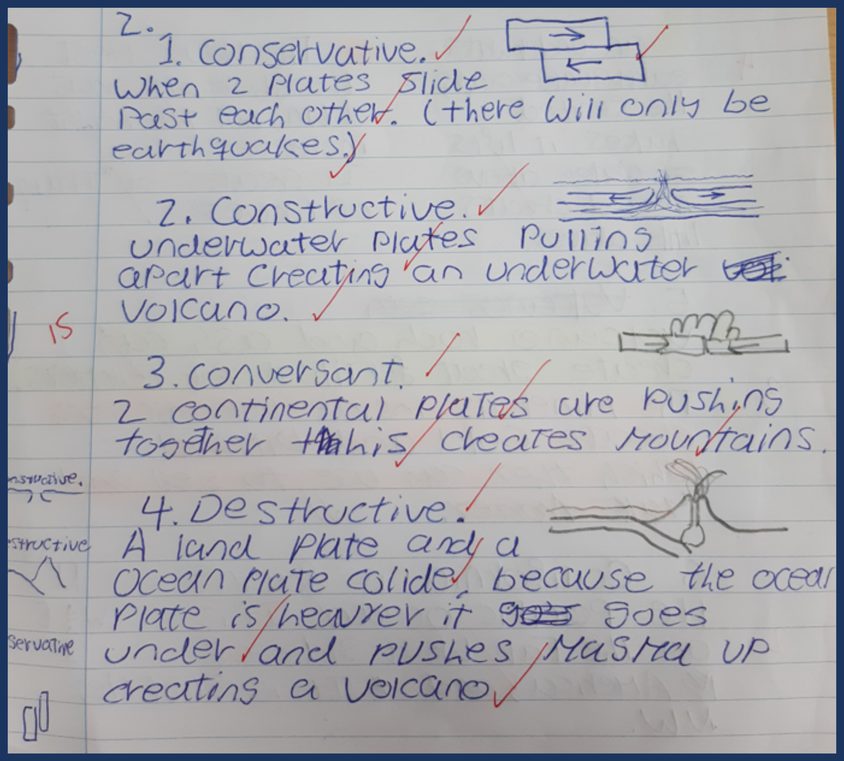 2.
1. Conservative.
When 2 plates slide
past each other. (there will only be
earthquakes.)
2. Constructive.
underwater plates pulling
apart creating an underwater
volcano.
15
3. conversant.
2 continental plates are pushing
together this creates mountains.
4. Destructive.
A land plate and a
ocean plate colide, because the ocean
plate is heavyer it goes
under and pushes magma up
creating a volcano